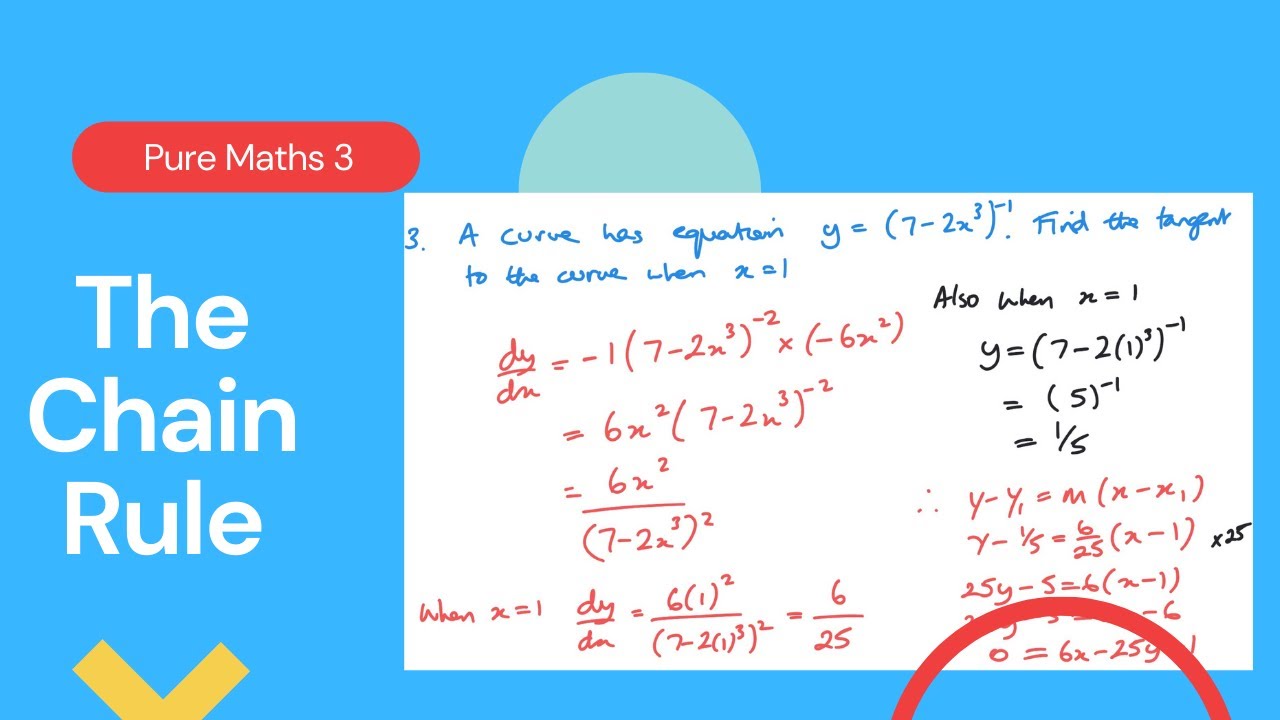 Pure Maths 3
The
Chain
Rule
3. A curve has equation y = (7-2x³)⁻¹. Find the tangent
to the curve when x=1
dy/dx = -1(7-2x³)⁻² × (-6x²)
= 6x²(7-2x³)⁻²
= 6x²/(7-2x³)²
when x=1 dy/dx = 6(1)²/(7-2(1)³)² = 6/25
Also when x=1
y=(7-2(1)³)⁻¹
= (5)⁻¹
= 1/5
∴ y-y₁ = m(x-x₁)
y-1/5 = 6/25(x-1) ×25
25y-5=6(x-1)
-6
0 = 6x-25y